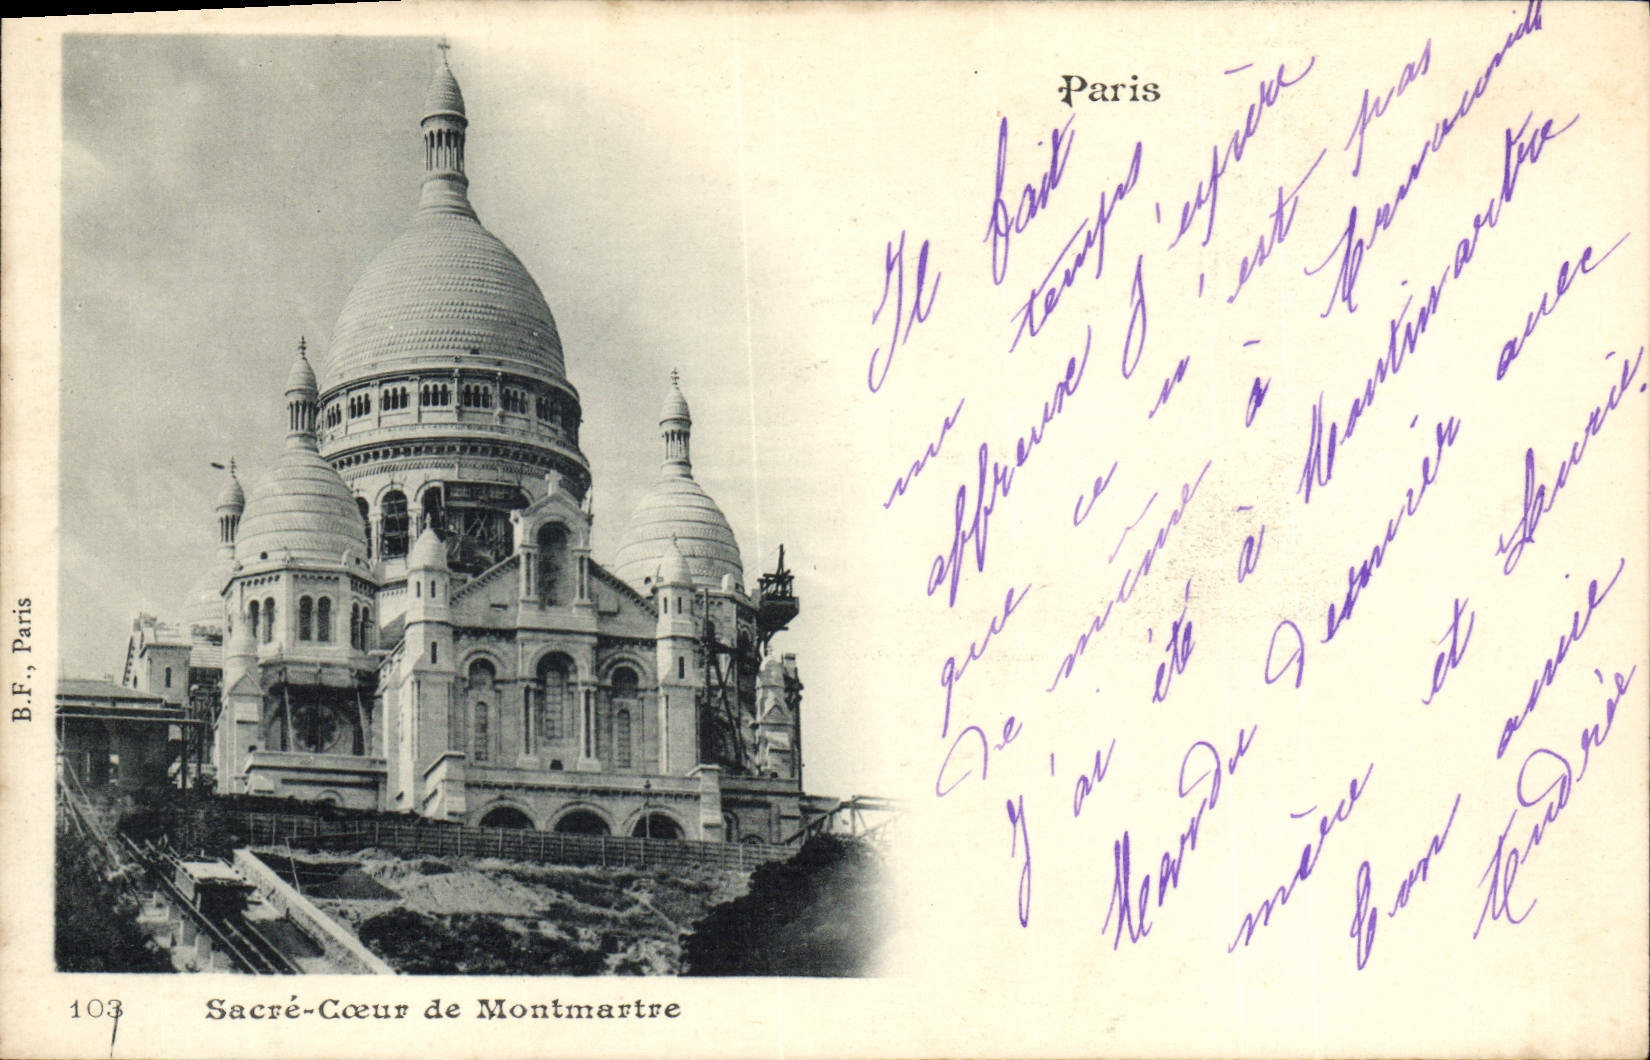 Paris
Il fait
un temps
affreux J'espère
que ce n'est pas
de même à
J'ai été à Montmartre
Mardi dernier avec
mère et Laurie.
Ton amie
Andrée
B.F., Paris
103 Sacré-Cœur de Montmartre